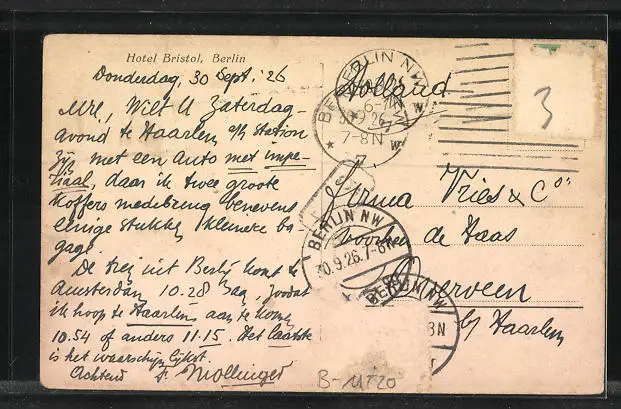 Hotel Bristol, Berlin
Donderdag, 30 Sept. '26
Mre, Wilt U Zaterdag-
avond te Haarlem a/h station
zijn met een auto met impe-
riaal, daar ik twee groote
koffers medebreng benevens
eenige stukken kleinere ba-
gage.
De trein uit Berlijn komt te
Amsterdam 10.28 aan, zoodat
ik hoop te Haarlem aan te komen
10.54 of anders 11.15. Het laatste
is het waarschijnlijkst.
Achtend F. Mollinger
Holland
Firma Vries & Co
voorheen de Haas
Overveen
bij Haarlem
BERLIN NW
7-8N
BERLIN NW
30.9.26.7-8N
BERLIN NW
8N
3
B-11720